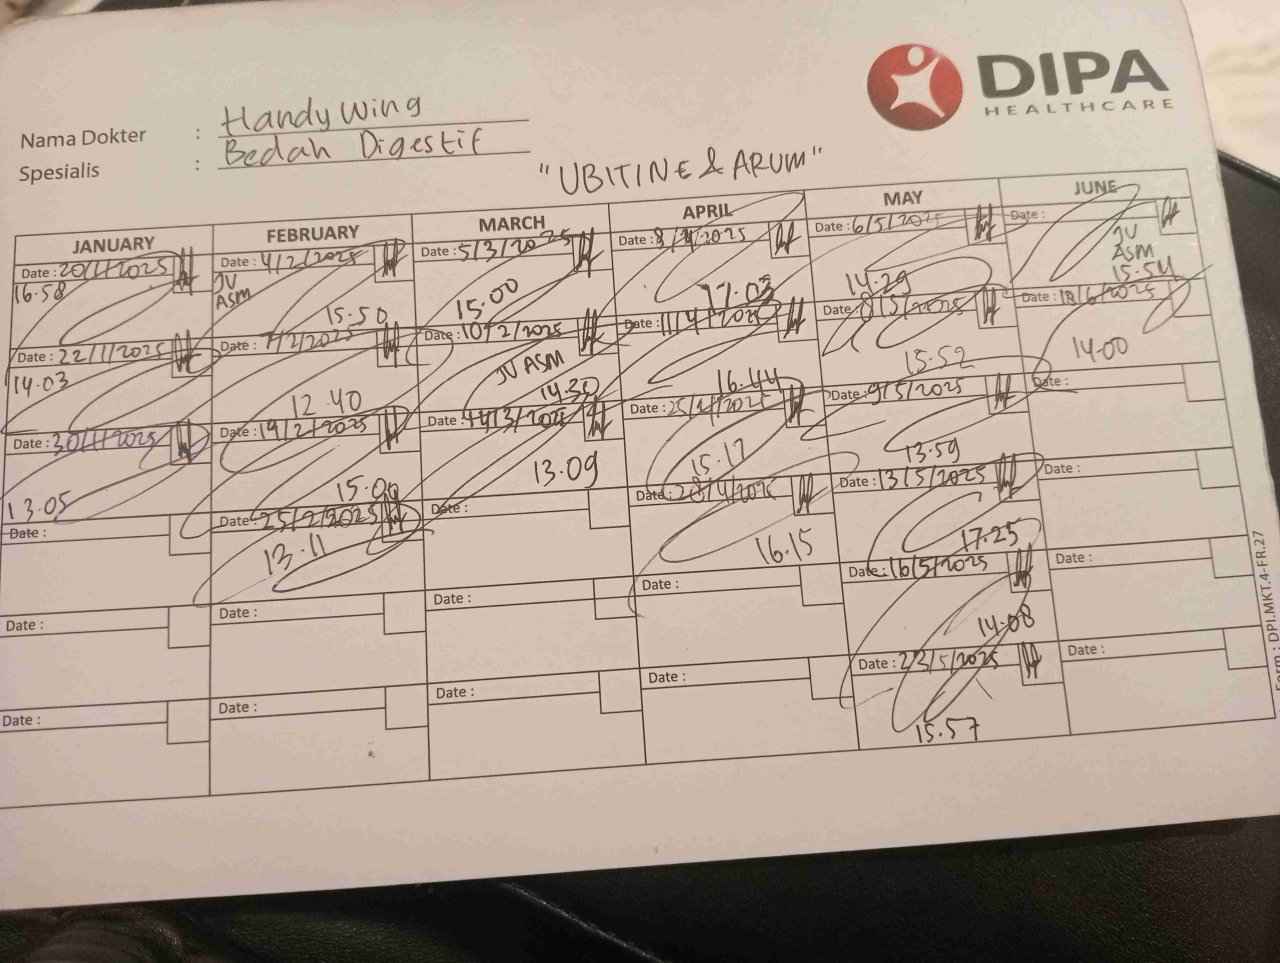 DIPA
HEALTHCARE
Nama Dokter : Handy Wing
Spesialis : Bedah Digestif
"UBITINE & ARUM"
JANUARY
Date : 20/1/2025
16.58
Date : 22/1/2025
14.03
Date : 30/1/2025
13.05
Date :
Date :
Date :
FEBRUARY
Date : 4/2/2025
JV
ASM
15.50
Date : 7/2/2025
12.40
Date : 19/2/2025
15.00
Date : 25/2/2025
13.11
Date :
Date :
MARCH
Date : 5/3/2025
15.00
Date : 10/2/2025
JV ASM
14.30
Date : 14/3/2025
13.09
Date :
Date :
Date :
APRIL
Date : 8/4/2025
17.03
Date : 11/4/2025
16.44
Date : 25/4/2025
15.17
Date : 28/4/2025
16.15
Date :
Date :
MAY
Date : 6/5/2025
14.29
Date : 8/5/2025
15.52
Date : 9/5/2025
13.59
Date : 13/5/2025
17.25
Date : 16/5/2025
14.08
Date : 23/5/2025
15.57
JUNE
Date :
JV
ASM
15.54
Date : 18/6/2025
14.00
Date :
Date :
Date :
Date :
Form : DPI.MKT.4-FR.27